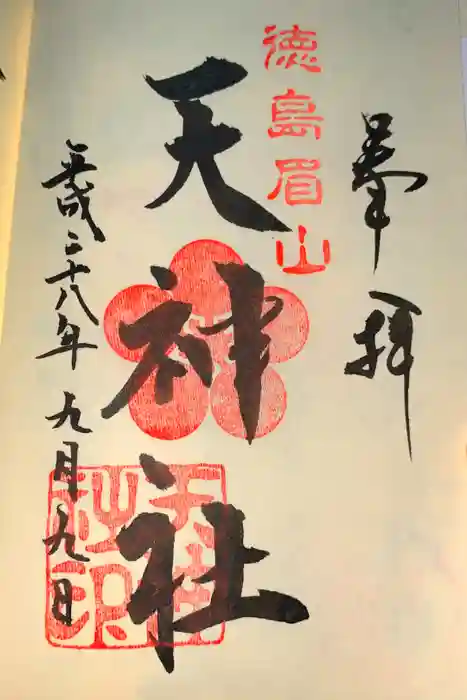 奉拝
徳島眉山
天神社
平成二十八年九月九日
天神社印